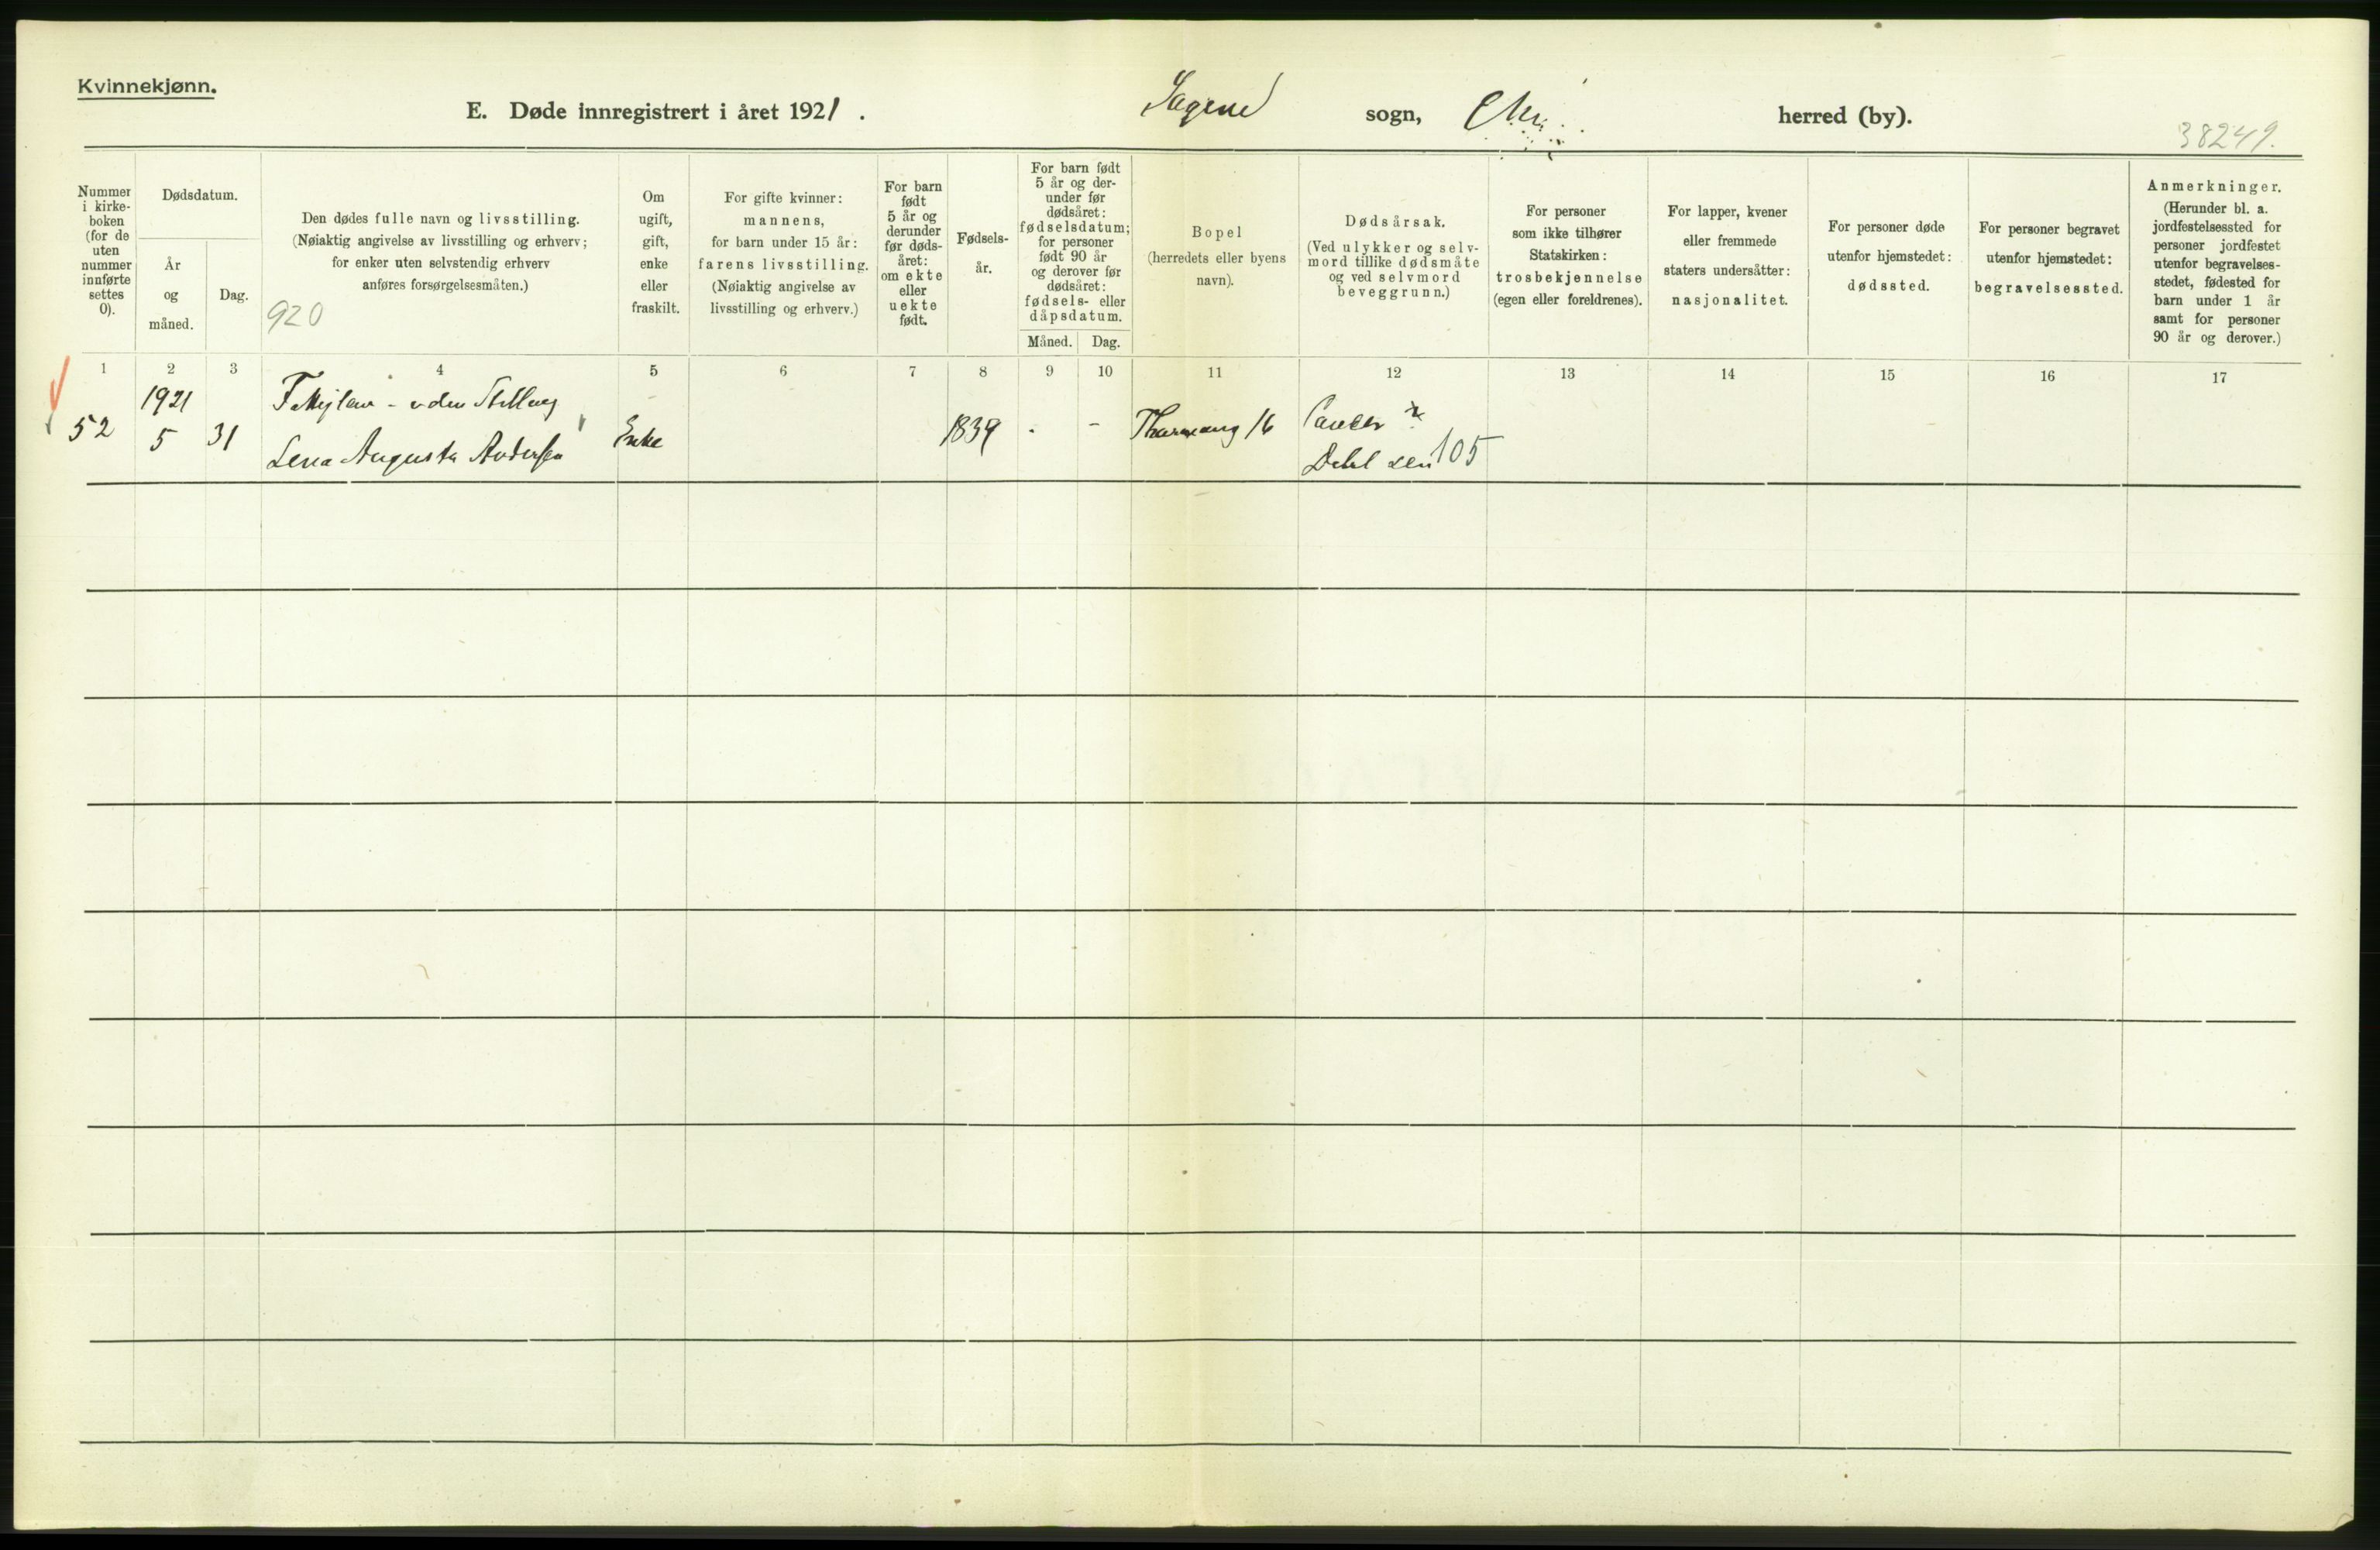 Kvinnekjønn.
E. Døde innregistrert i året 1921.
Sagene sogn, Chra. herred (by).
38249.
Nummer i kirke-
boken
(for de
uten
nummer
innførte
settes
0).
Dødsdatum.
År
og
måned.
Dag.
Den dødes fulle navn og livsstilling.
(Nøiaktig angivelse av livsstilling og erhverv;
for enker uten selvstendig erhverv
anføres forsørgelsesmåten.)
920
Om
ugift,
gift,
enke
eller
fraskilt.
For gifte kvinner:
mannens,
for barn under 15 år:
farens livsstilling.
(Nøiaktig angivelse av
livsstilling og erhverv.)
For barn
født
5 år og
derunder
før døds-
året:
om ekte
eller
uekte
født.
Fødsels-
år.
For barn født
5 år og der-
under før
dødsåret:
fødselsdatum;
for personer
født 90 år
og derover før
dødsåret:
fødsels- eller
dåpsdatum.
Måned.
Dag.
Bopel
(herredets eller byens
navn).
Dødsårsak.
(Ved ulykker og selv-
mord tillike dødsmåte
og ved selvmord
beveggrunn.)
For personer
som ikke tilhører
Statskirken:
trosbekjennelse
(egen eller foreldrenes).
For lapper, kvener
eller fremmede
staters undersåtter:
nasjonalitet.
For personer døde
utenfor hjemstedet:
dødssted.
For personer begravet
utenfor hjemstedet:
begravelsessted.
Anmerkninger.
(Herunder bl. a.
jordfestelsessted for
personer jordfestet
utenfor begravelses-
stedet, fødested for
barn under 1 år
samt for personer
90 år og derover.)
1 2 3 4 5 6 7 8 9 10 11 12 13 14 15 16 17
1921
52 5 31
Lena Augusta Andersen
Enke
1839 - -
16
Cancer ?
105